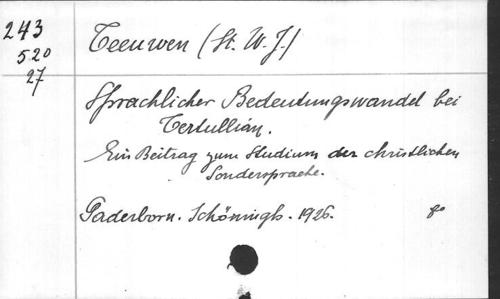 243
520
27
Teeuwen (St. W. J.)
Sprachlicher Bedeutungswandel bei
Tertullian.
Ein Beitrag zum Studium der christlichen
Sondersprache.
Paderborn. Schöningh. 1926. 8°